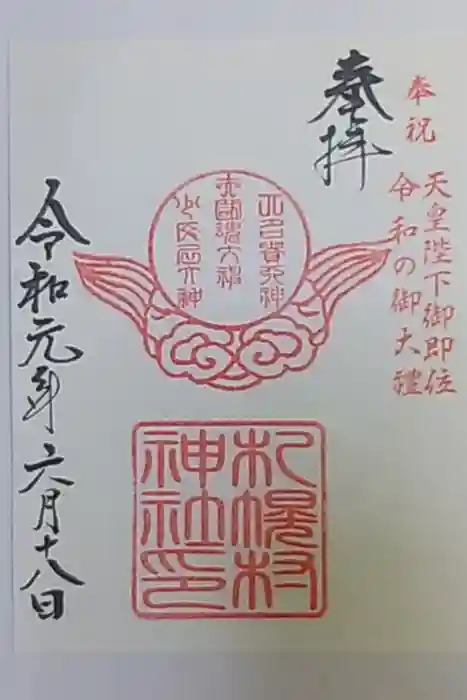 奉祝
天皇陛下御即位
令和の御大禮
奉拝
大名貴天神
大国魂大神
少彦名大神
札幌村
神社印
令和元年六月十八日